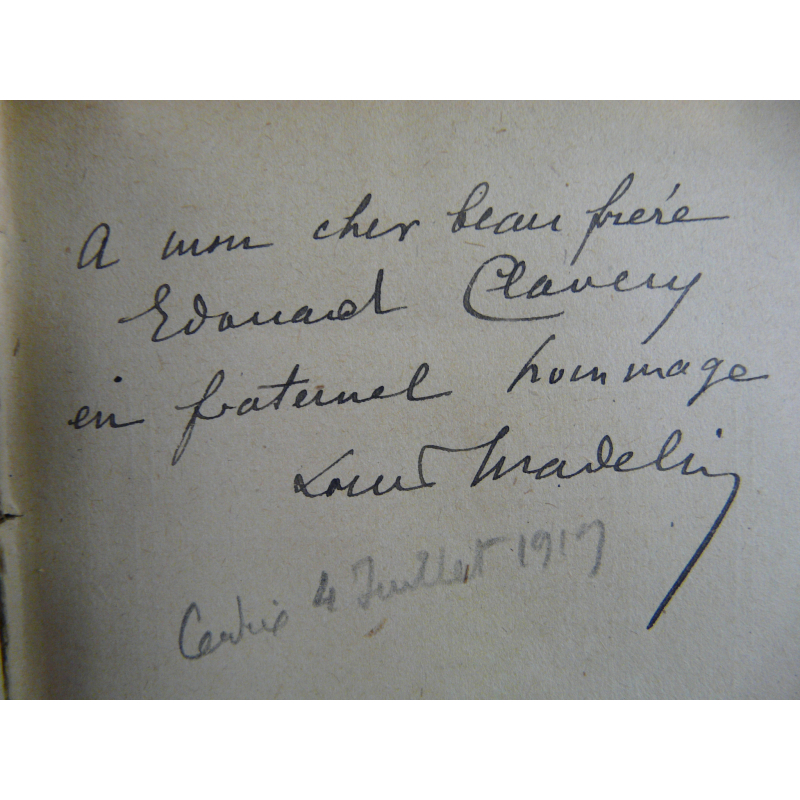 A mon cher beau frère
Edouard Clavery
en fraternel hommage
Louis Madelin
4 Juillet 1917